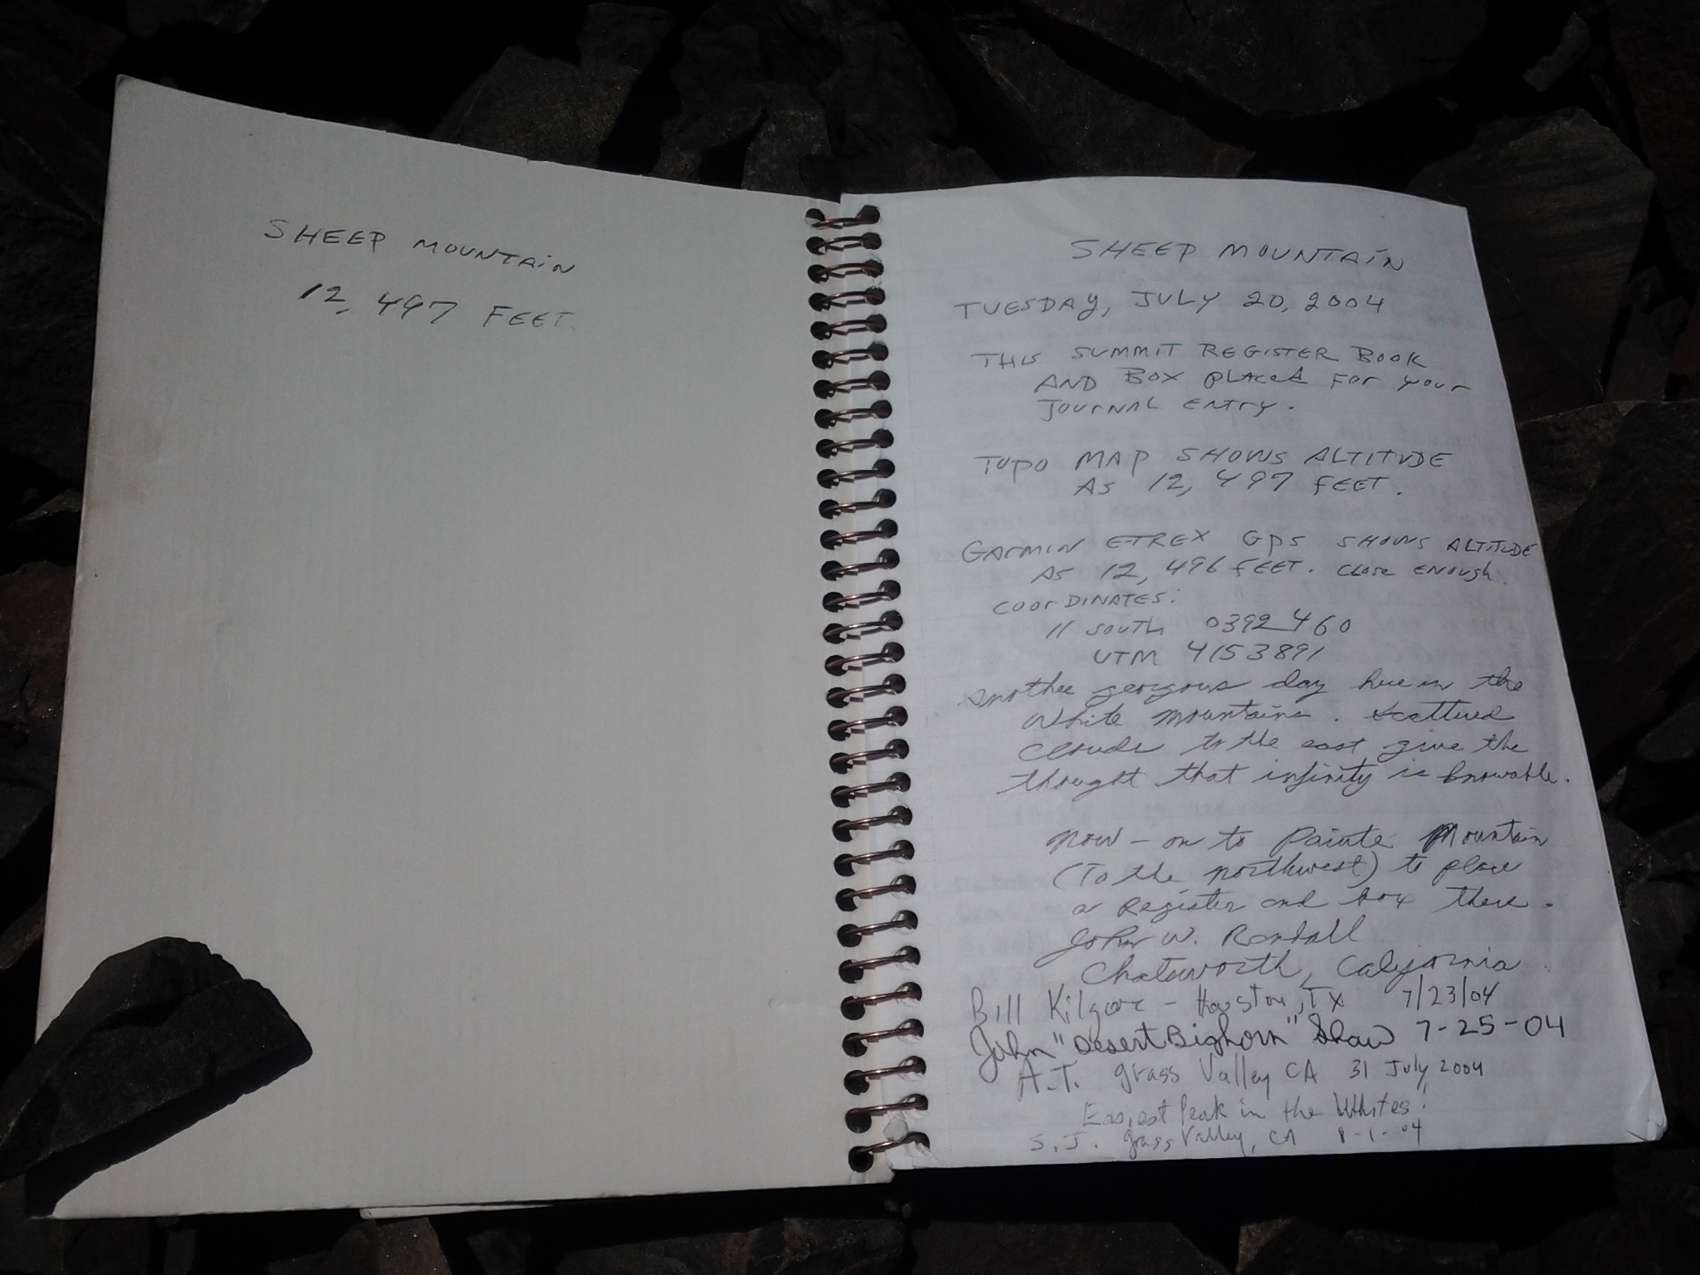 SHEEP MOUNTAIN
12,497 FEET
SHEEP MOUNTAIN
TUESDAY, JULY 20, 2004
THIS SUMMIT REGISTER BOOK
AND BOX PLACED FOR YOUR
JOURNAL ENTRY.
TOPO MAP SHOWS ALTITUDE
AS 12,497 FEET.
GARMIN ETREX GPS SHOWS ALTITUDE
AS 12,496 FEET. CLOSE ENOUGH
COORDINATES:
11 SOUTH 0392460
UTM 4153891
Another gorgous day here in the
White Mountains. Scattered
clouds to the east give the
thought that infinity is knowable.
Now - on to Paiute Mountain
(To the northwest) to place
a register and box there.
John W. Randall
Chatsworth, California
Bill Kilgore - Houston, TX 7/23/04
John "Desert Bighorn" Shaw 7-25-04
A.T. Grass Valley CA 31 July 2004
Easiest Peak in the Whites!
S.J. Grass Valley, CA 8-1-04